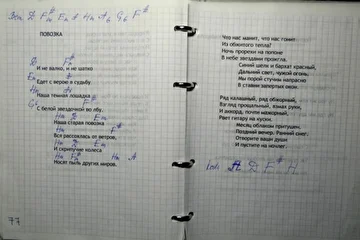 ПОВОЗКА
D F#m
И не валко, и не шатко
Em A
Едет с верою в судьбу
Hm A
Наша тёмная лошадка
G F#
С белой звездочкой во лбу.
Hm D Em
Наша старая повозка
Hm F#
Вся рассохлась от ветров,
Hm D Em
И скрипучие колеса
Hm F# Hm A
Носят пыль других миров.
77
Что нас манит, что нас гонит
Из обжитого тепла?
Ночь прорехи на попоне
В небе звездами прожгла.
Синий шелк и бархат красный,
Дальний свет, чужой огонь.
Мы порой стучим напрасно
В ставни запертых окон.
Ряд калашный, ряд обжорный,
Взгляд прощальный, взмах руки,
И аккорд, почти мажорный,
Рвет гитару на куски.
Месяц облаком притушен,
Поздний вечер. Ранний снег.
Отворите ваши души
И пустите на ночлег.
D E# H